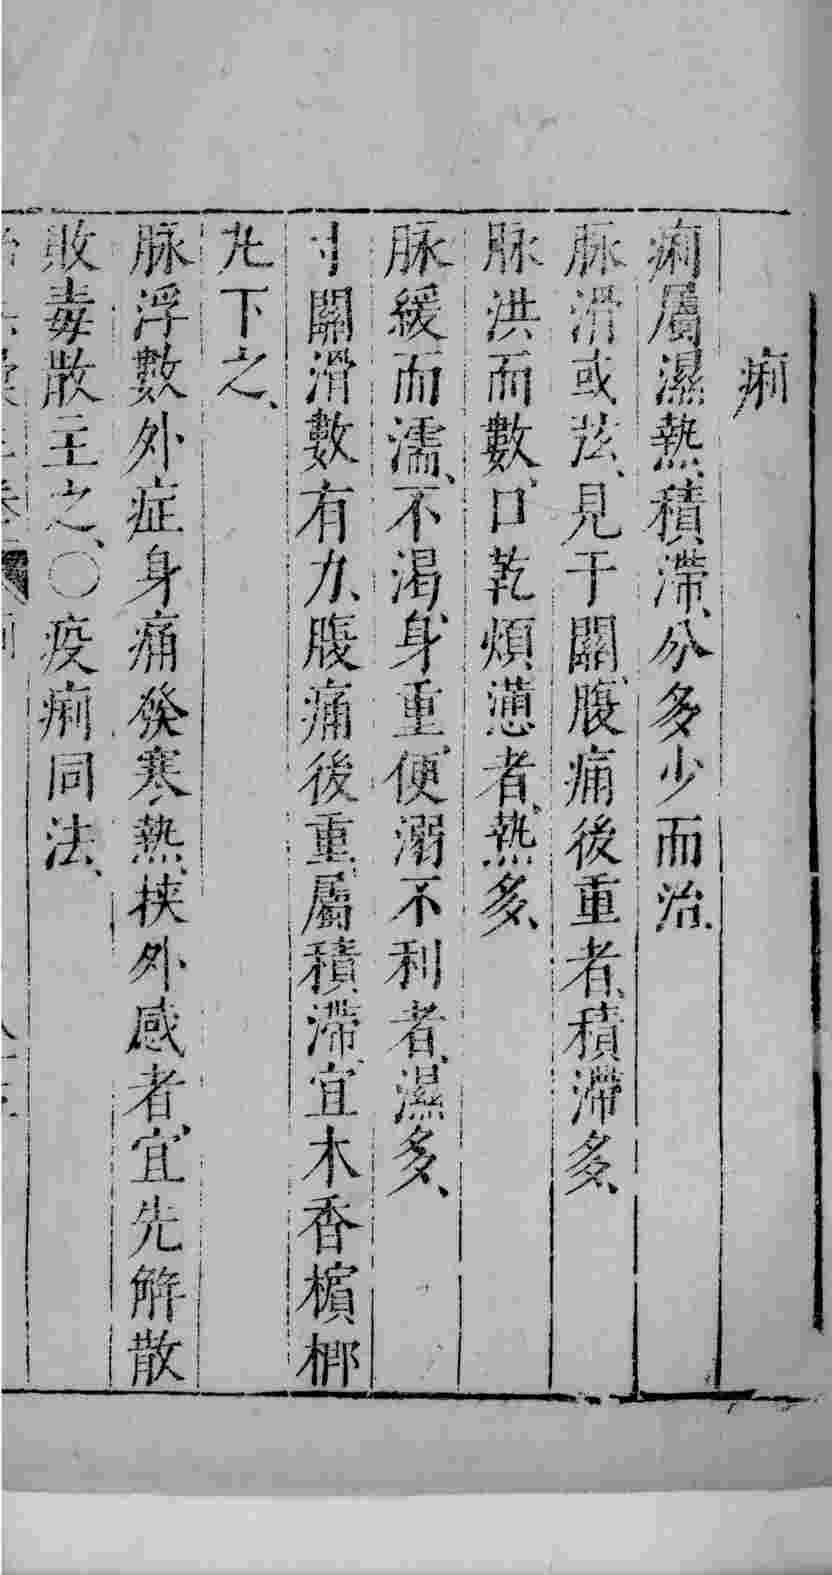 痢
痢屬濕熱積滯、分多少而治、
脉滑或弦、見于關、腹痛後重者、積滯多、
脉洪而數、口乾煩懣者、熱多、
脉緩而濡、不渴、身重、便溺不利者、濕多、
寸關滑數有力、腹痛後重、屬積滯、宜木香檳榔
丸下之、
脉浮數外症身痛發寒熱、挾外感者、宜先解散
敗毒散主之、〇疫痢同法、